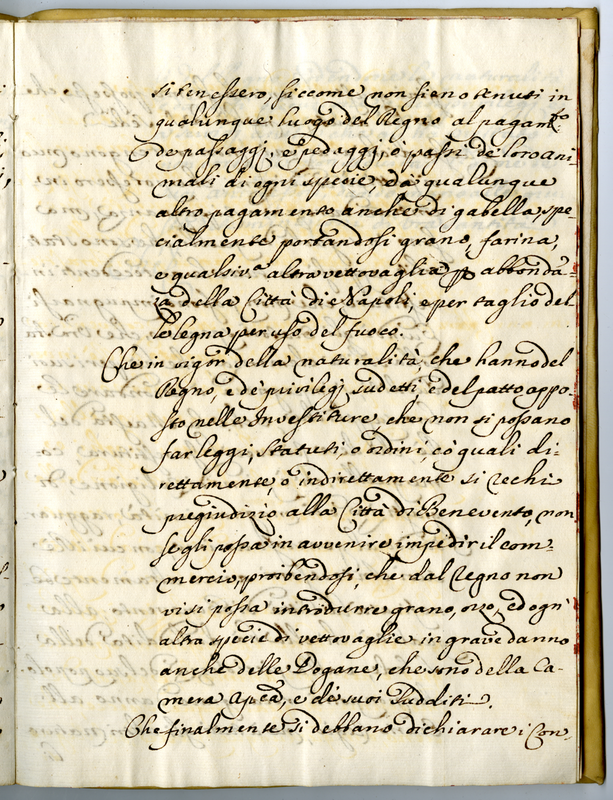 si tenessero, siccome non sieno tenuti in
qualunque luogo del Regno al pagam.to
de passaggi, e pedaggj, o passi de loro ani-
mali di ogni specie, da qualunque
altro pagamento anche di gabella spe-
cialmente portandosi grano, farina,
e qualsiv.a altra vettovaglia p abbondā-
za della Città di Napoli, e per taglio del
le legna per uso del fuoco.
Che in vigor della naturalità, che hanno del
Regno, e de privilegj sudetti, e del patto appo-
sto nelle Investiture, che non si possano
far leggi, statuti, o ordini, co quali di-
rettamente, o indirettamente si rechi
pregiudizio alla Città di Benevento, non
se gli possa in avvenire impedir il com-
mercio, proibendosi, che dal Regno non
vi si possa introdurre grano, orzo, ed ogn'
altra specie di vettovaglie in grave danno
anche delle Dogane, che sono della Ca-
mera Apca, e de suoi Sudditi.
Che finalmente si debbano dichiarare i Con-